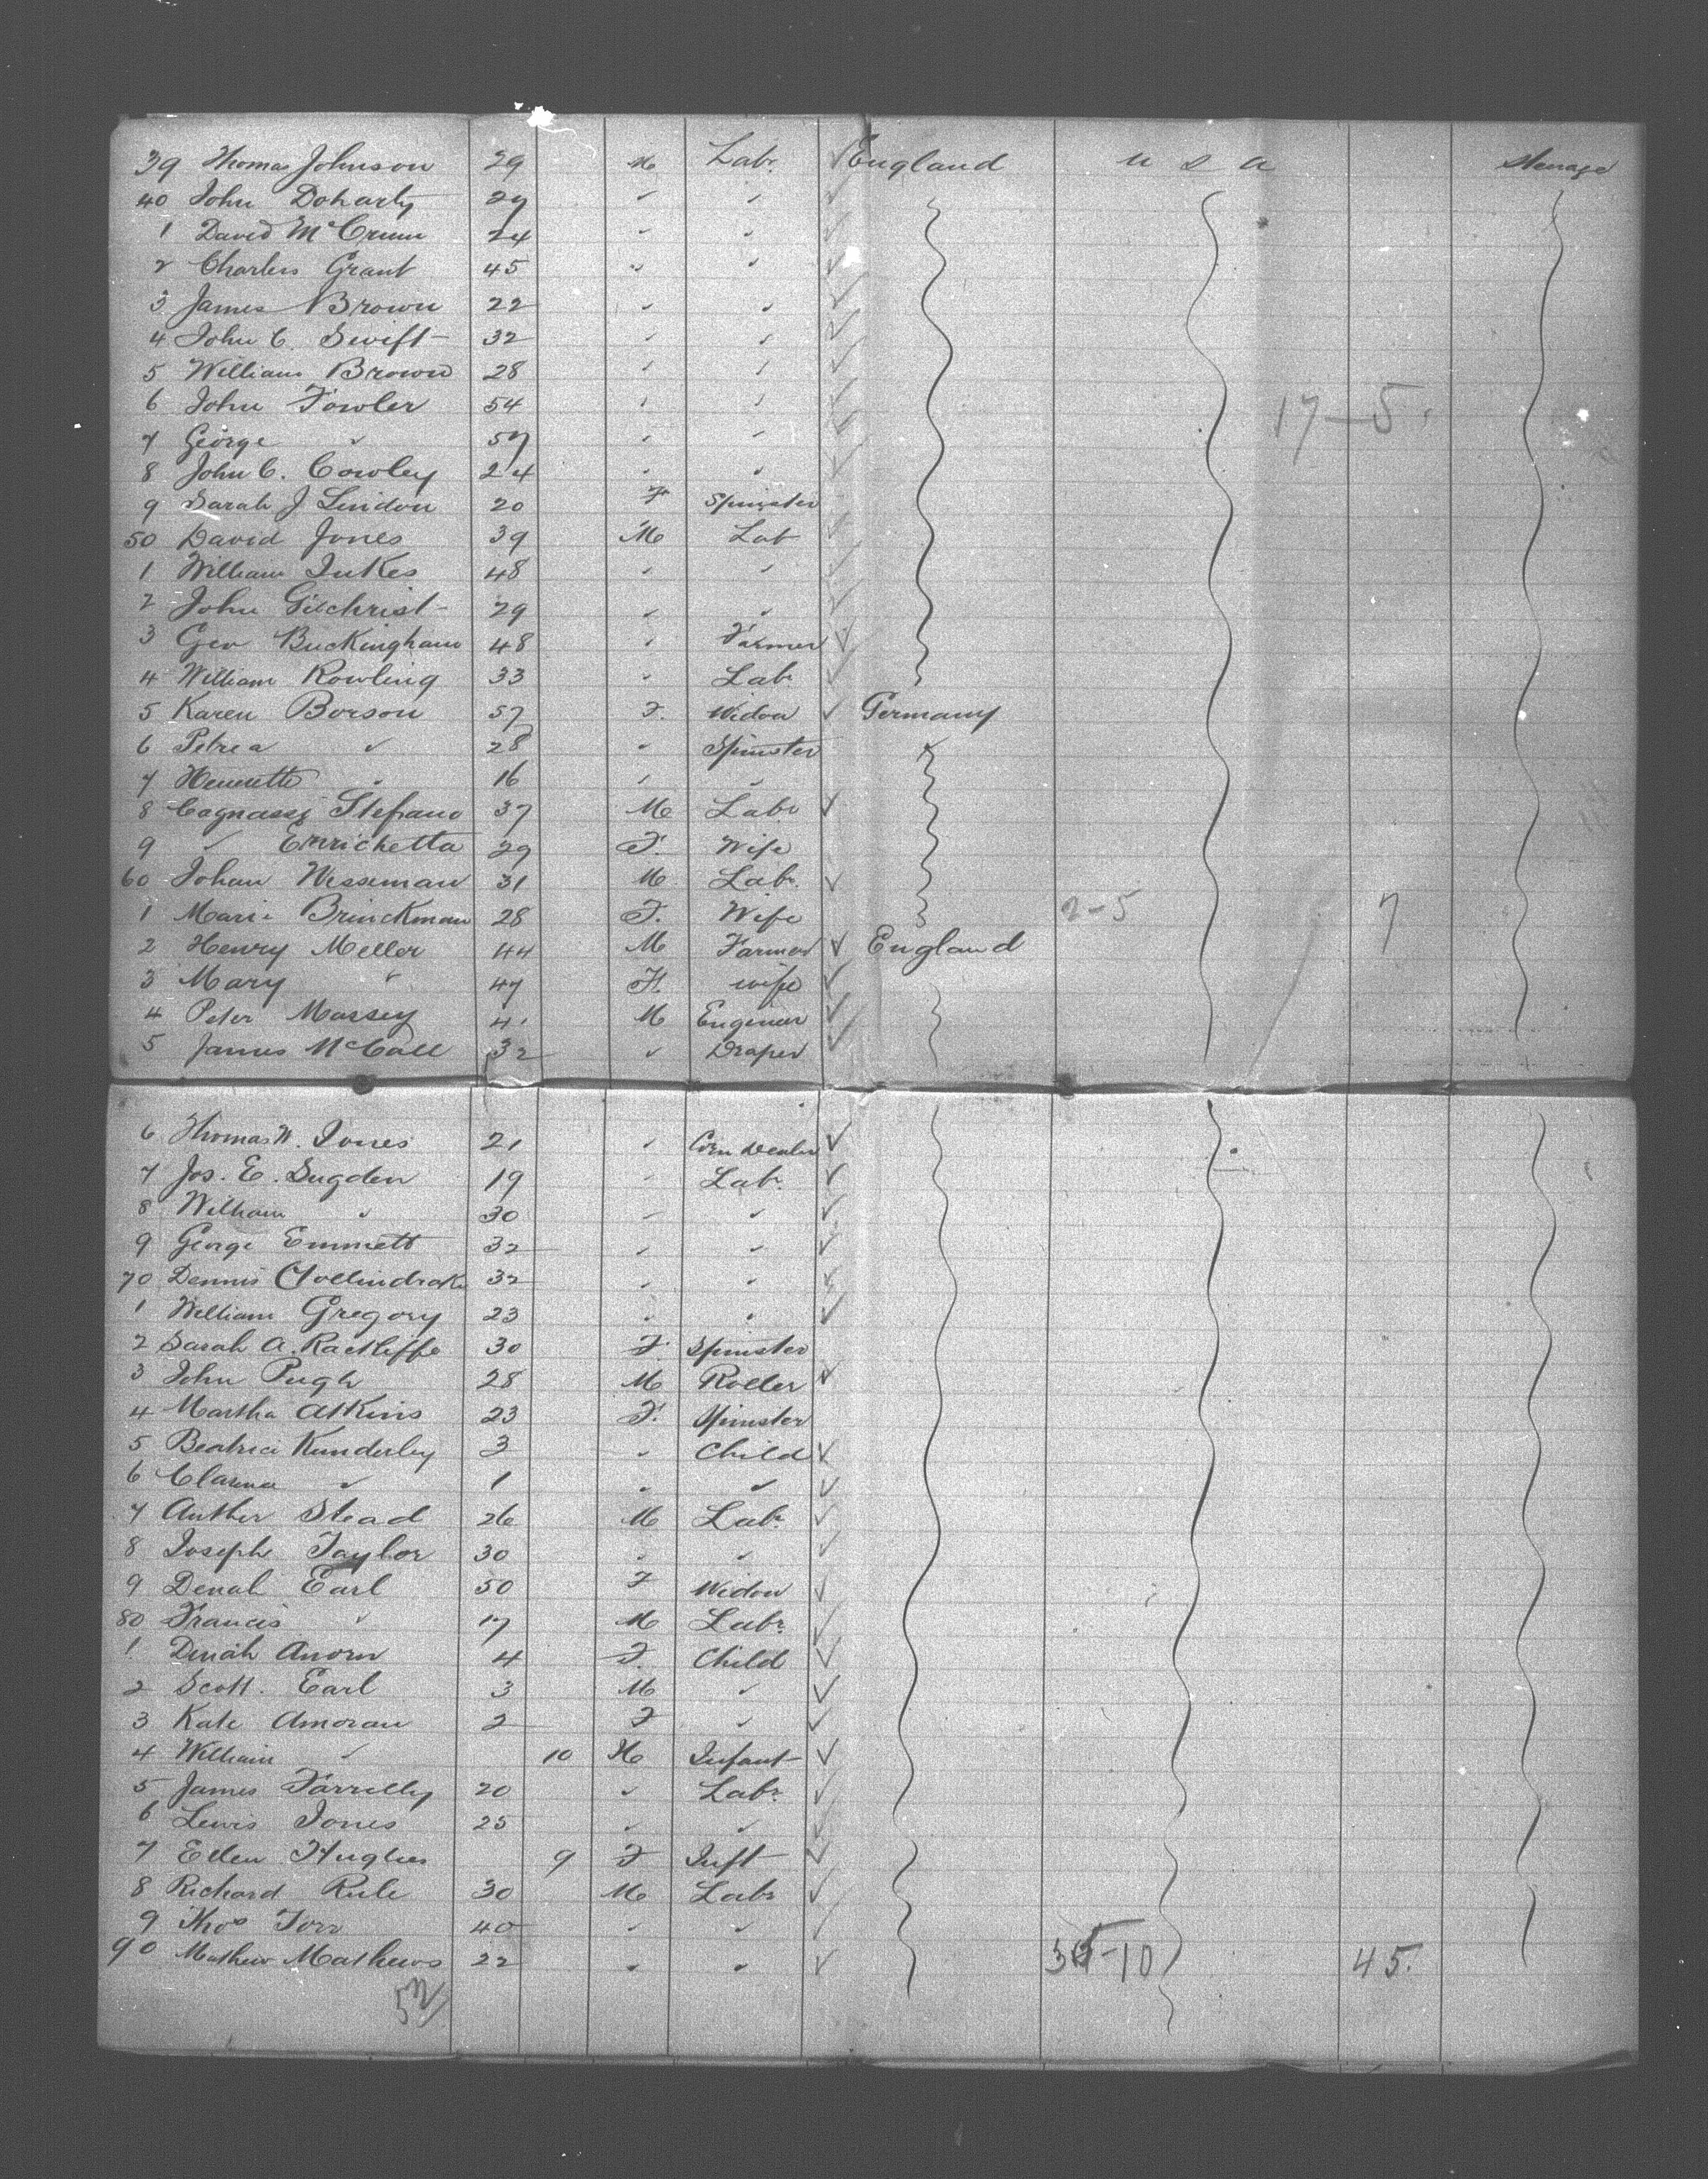 39 Thomas Johnson 29 M Labr. ✓ England U S A Steerage
40 John Doharty 29 " " ✓
1 David McCrum 24 " " ✓
2 Charles Grant 45 " " ✓
3 James Brown 22 " " ✓
4 John C. Swift 32 " " ✓
5 William Brown 28 " " ✓
6 John Fowler 54 " " ✓ 17-5
7 George " 57 " " ✓
8 John C. Cowley 24 " " ✓
9 Sarah J Lindon 20 F Spinster
50 David Jones 39 M Lab ✓
1 William Jukes 48 " " ✓
2 John Gilchrist 29 " " ✓
3 Geo Buckingham 48 " Farmer ✓
4 William Rowling 33 " Labr ✓
5 Karen Borson 57 F. Widow ✓ Germany
6 Petrea " 28 " Spinster
7 Henrietta " 16 " "
8 Stefano 37 M Labr ✓
9 " Enrichetta 29 F. Wife
60 Johan Wesseman 31 M Labr. ✓
1 Marie Brinckman 28 F. Wife 2-5 7
2 Henry Meller 44 M Farmer ✓ England
3 Mary " 47 F. Wife ✓
4 Peter Massey 41 M Engineer ✓
5 James McCall 32 " Draper ✓
6 Thomas W. Jones 21 " Corn Dealer ✓
7 Jos. E. Sugden 19 " Labr. ✓
8 William " 30 " " ✓
9 George Emmett 32 " " ✓
70 Dennis 32 " " ✓
1 William Gregory 23 " " ✓
2 Sarah A. Ractliffe 30 F. Spinster
3 John Pugh 28 M Roller ✓
4 Martha Atkins 23 F. Spinster
5 Beatrice Kunderley 3 " Child ✓
6 " 1 " " ✓
7 Auther Stead 26 M Labr. ✓
8 Joseph Taylor 30 " " ✓
9 Denah Earl 50 F Widow ✓
80 Francis " 17 M Labr. ✓
1 Dinah 4 F. Child ✓
2 Scott. Earl 3 M " ✓
3 Kate Amoran 2 F " ✓
4 William " 10 M Infant ✓
5 James Farrelly 20 " Labr. ✓
6 Lewis Jones 25 " " ✓
7 Ellen Hughes 9 F Inft ✓
8 Richard Rule 30 M Labr ✓
9 Thos Torr 40 " " ✓
90 Mathew Mathews 22 " " ✓ 35-10 45.
52